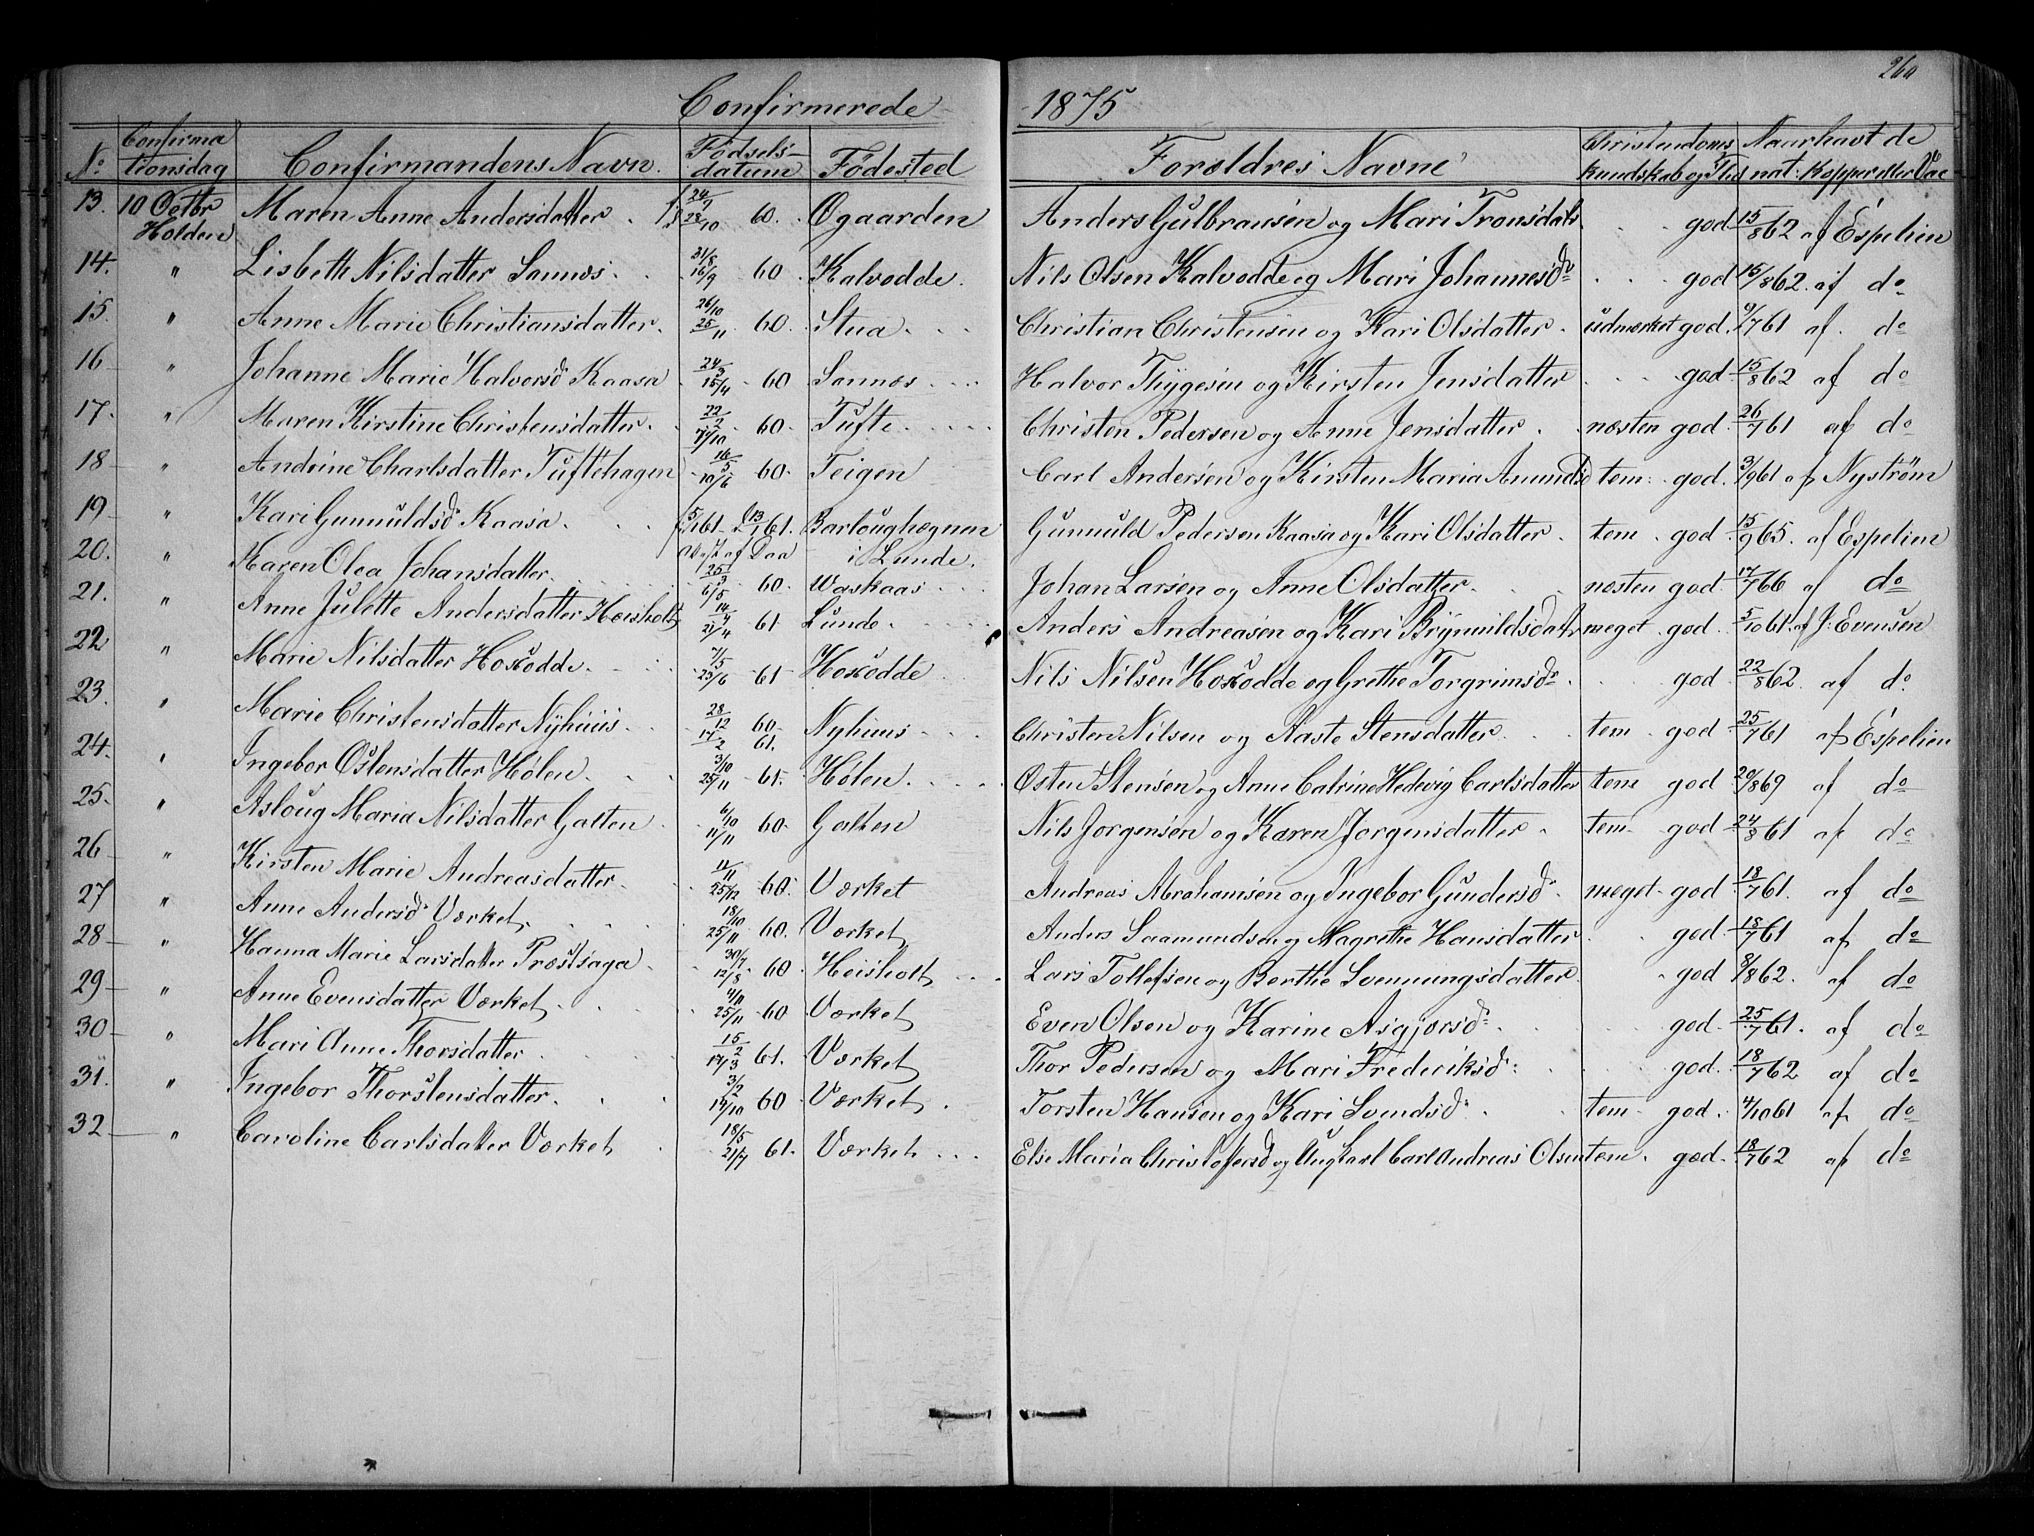 260
Confirmerede 1875
No Confirmationsdag Confirmandens Navn. Fødselsdatum Fødested Forældres Navne Christendoms kundskab og Flid Naar havt de nat: Kopper eller Vac
13. 10 Octbr Holden Maren Anne Andersdatter 60. Øgaarden Anders Gulbransen og Mari Tronsdatr god 15/8 62 af Espelien
14. " Lisbeth Nilsdatter Sannæs. 31/8 16/9 60 Kalvodde. Nils Olsen Kalvodde og Mari Johannesdr god 15/8 62. af do
15. " Anne Marie Christiansdatter. 26/10 25/11 60. Stua. Christian Christensen og Kari Olsdatter. udmærket god. 9/7 61 af. do
16 " Johanne Marie Halvorsdr Kaasa 24/3 15/4 60 Sannæs Halvor Thygesen og Kirsten Jensdatter god 15/8 62 af do
17. " Maren Kirstine Christensdatter. 22/2 60. Tufte. Christen Pedersen og Anne Jensdatter. næsten god. 26/7 61 af do
18 " Andrine Charlsdatter Tuftehagen 16/5 10/6 60. Teigen Carl Andersen og Kirsten Maria Amundsd tem. god. 3/9 61 af Nystrøm
19 " Kari Gunnuldsdr Kaasa. 61 61. i Lunde. Gunnuld Pedersen Kaasa og Kari Olsdatter. tem. god 15/9 65. af Espelien
20. " Karen Olea Johansdatter. 25/3 6/5 60. Waskaas Johan Larsen og Anne Olsdatter. næsten god. 17/7 66 af do
21. " Anne Julette Andersdatter Heisholt 14/4 21/4 61 Lunde. Anders Andreasen og Kari Brynnildsdatr meget god. 5/10 61. af J: Evensen
22 " Marie Nilsdatter Hoxodde. 23/6 61 Hoxodde Nils Nilsen Hoxodde og Grethe Torgrimsdr. god 22/8 62. af do.
23. " Marie Christensdatter Nyhuus 28/12 60 17/2 61. Nyhuus Christen Nilsen og Aaste Stensdatter tem god 25/7 61 af Espelien
24. " Ingebor Østensdatter Hølen. 3/10 25/11 61. Hølen. Østen Stensen og Anne Catrine Hedevig Carlsdatter tem god 20/8 69 af do
25. " Asloug Maria Nilsdatter Galten 6/10 11/11 60. Galten Nils Jorgensen og Karen Jorgensdatter. tem god 24/8 61 af do
26 " Kirsten Marie Andreasdatter. 11/11 25/12 60. Værket Andreas Abrahamsen og Ingebor Gundersdr meget god 18/7 61. af do
27 " Anne Andersdr Værket. 18/10 25/11 60. Værket Anders Saamundsen og Magrethe Hansdatter god. 18/7 61 af do
28 " Hanna Marie Larsdatter Præstsaga 30/7 12/8 60 Heisholt Lars Tollefsen og Berthe Svenningsdatter god 8/8 62. af do
29 " Anne Evensdatter Værket. 4/11 25/11 60 Værket Even Olsen og Karine Asgjorsdr. god. 25/7 61. af do
30 " Mari Anne Thorsdatter 15/2 17/3 61. Værket Thor Pedersen og Mari Frederiksdr: god. 18/7 62 af do
31. " Ingebor Thorstensdatter. 3/2 14/10 60 Værket. Torsten Hansen og Kari Svendsdr. tem god. 4/10 61 af do
32 " Caroline Carlsdatter Værket 18/5 21/7 61. Værket. Else Maria Christofersd og Ungkarl Carl Andreas Olsen tem. god. 18/7 62 af do